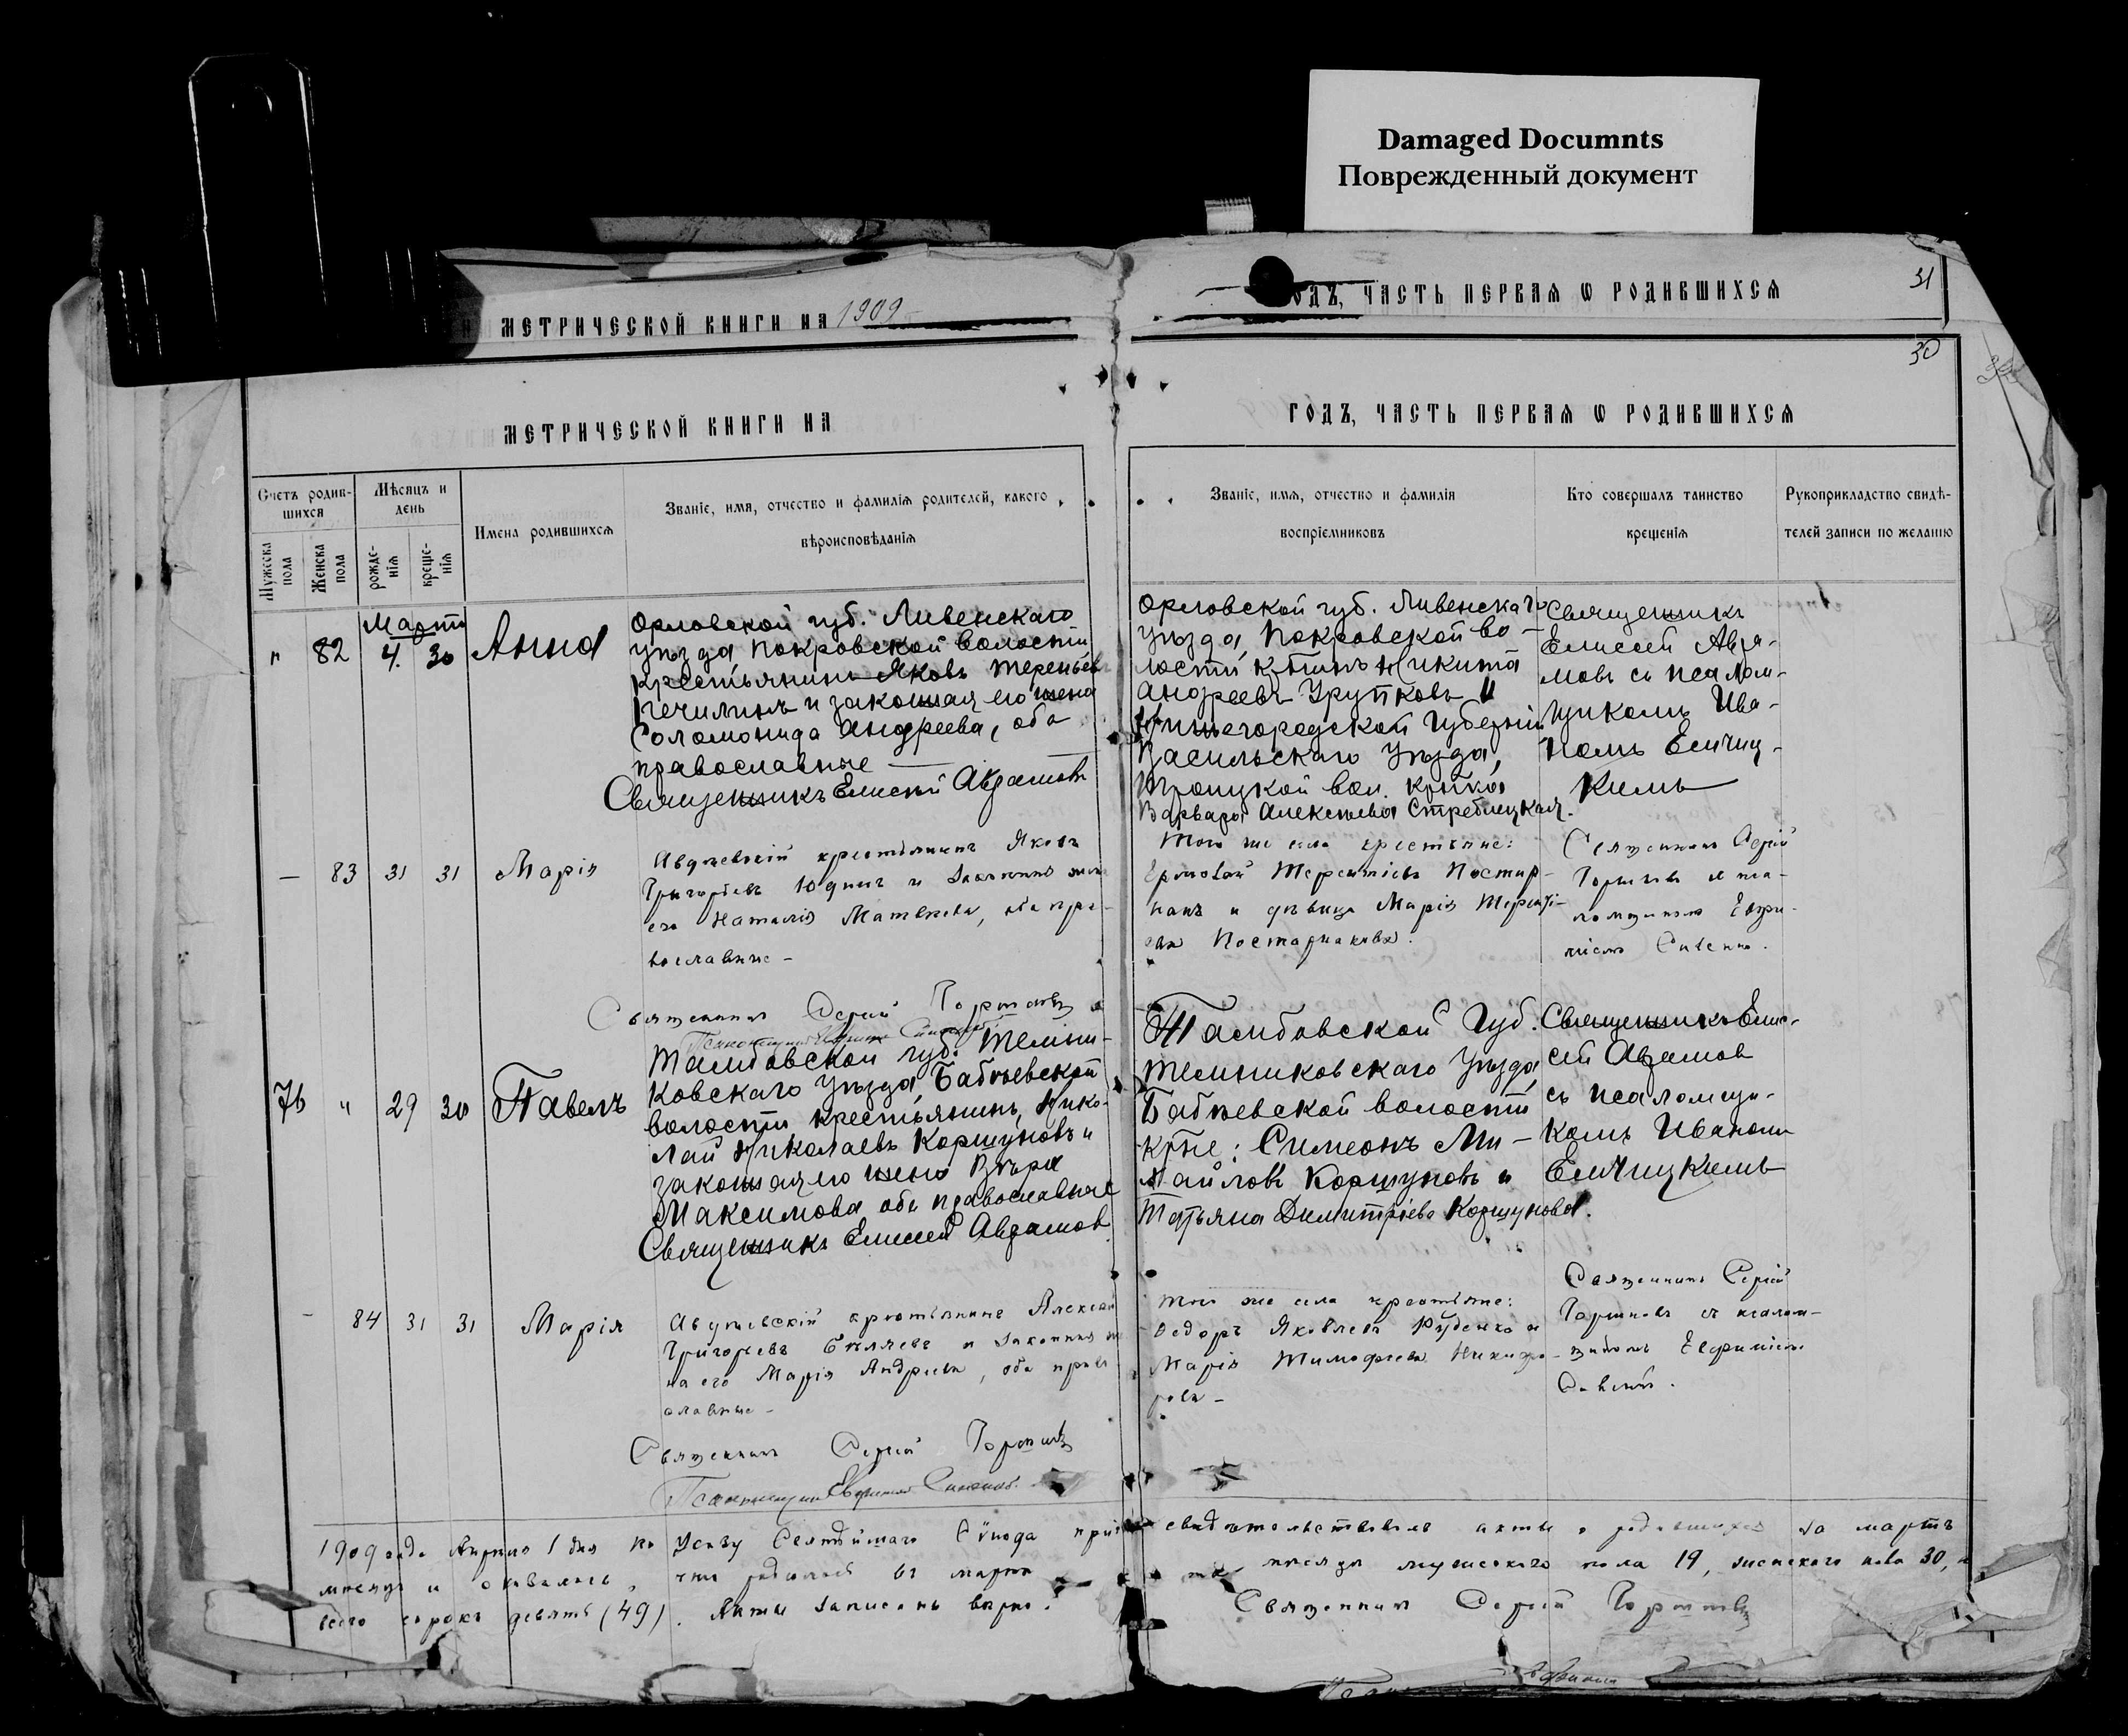 Damaged Documnts
Поврежденный документ
МЕТРИЧЕСКОЙ КНИГИ НА 1909
ОДЪ, ЧАСТЬ ПЕРВАЯ Ѡ РОДИВШИХСЯ
31
30
МЕТРИЧЕСКОЙ КНИГИ НА
ГОДЪ, ЧАСТЬ ПЕРВАЯ Ѡ РОДИВШИХСЯ
Счетъ родив-
шихся
Мужеска
пола
Женска
пола
Мѣсяцъ и
день
рожде-
нія
креще-
нія
Имена родившихся
Званіе, имя, отчество и фамилія родителей, какого
вѣроисповѣданія
Званіе, имя, отчество и фамилія
воспріемниковъ
Кто совершалъ таинство
крещенія
Рукоприкладство свидѣ-
телей записи по желанію
Мартъ
" 82 4. 30 Анна
Орловской губ. Ливенскаго
уѣзда, Покровской волости
крестьянинъ Яковъ Терентьевъ
и законная его жена
Соломонида Андреева, оба
православные
Священникъ Елисей Авраамовъ
Орловской губ. Ливенскаго
уѣзда, Покровской во-
лости кр-нинъ Никита
Андреевъ и
Нижегородской Губерніи
Васильскаго уѣзда,
Троицкой вол. кр-нка
Варвара Алексѣева Стреблецкая.
Священникъ
Елисей Авра-
мовъ съ псалом-
щикомъ Ива-
номъ Ельчиц-
кимъ
— 83 31 31 Марія
Авдѣевскій крестьянинъ Яковъ
Григорьевъ Юдинъ и законная жена
его Наталія Матвѣева, оба пра-
вославные –
Священникъ Сергій
Того же села крестьяне:
Терентіевъ Постар-
накъ и дѣвица Марія Терентi-
ева Постарнакова.
Священникъ Сергій
съ пса-
ломщикомъ Евфи-
міемъ
76 " 29 30 Павелъ
Тамбовской губ. Темни-
ковскаго уѣзда, Бабѣевской
волости крестьянинъ, Нико-
лай Николаевъ Коршуновъ и
законная его жена Вѣра
Максимова оба православные
Священникъ Елисей Авраамовъ
Тамбовской Губ.
Темниковскаго уѣзда
Бабѣевской волости
кр-не: Симеонъ Ми-
хайловъ Коршуновъ и
Татьяна Димитріева Коршунова.
Священникъ Елис-
сей Авраамов
съ псаломщи-
комъ Иваномъ
Ельчицкимъ
– 84 31 31 Марія
Авдѣевскій крестьянинъ Алексѣй
Григорьевъ Бѣляевъ и законная же
на его Марія Андреева, оба право
славные –
Священникъ Сергій
Того же села крестьяне:
Ѳедоръ Яковлевъ Руденко и
Марія Тимофеева Никифо-
рова –
Священникъ Сергій
съ псалом-
щикомъ Евфиміемъ
1909 года Апрѣля 1 дня по Указу Святѣйшаго Сѵнода
свидѣтельствовалъ акты о родившихся за мартъ
мѣсяцъ и оказалось, что родилось въ мартѣ
мѣсяцѣ мужескаго пола 19, женскаго пола 30, а
всего сорокъ девять (49). Акты записаны вѣрно.
Священникъ Сергій